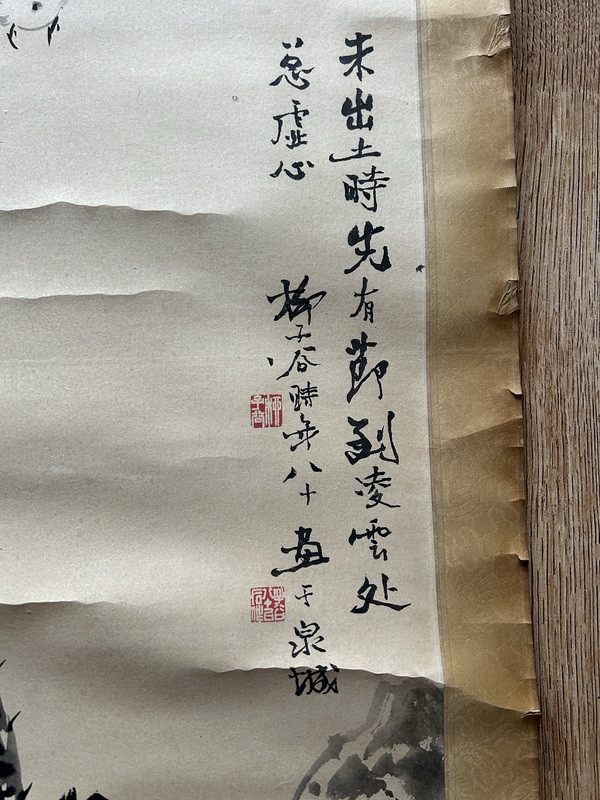 未出土時先有節到凌雲处
总虚心
柳子谷時年八十画于泉城
柳子谷